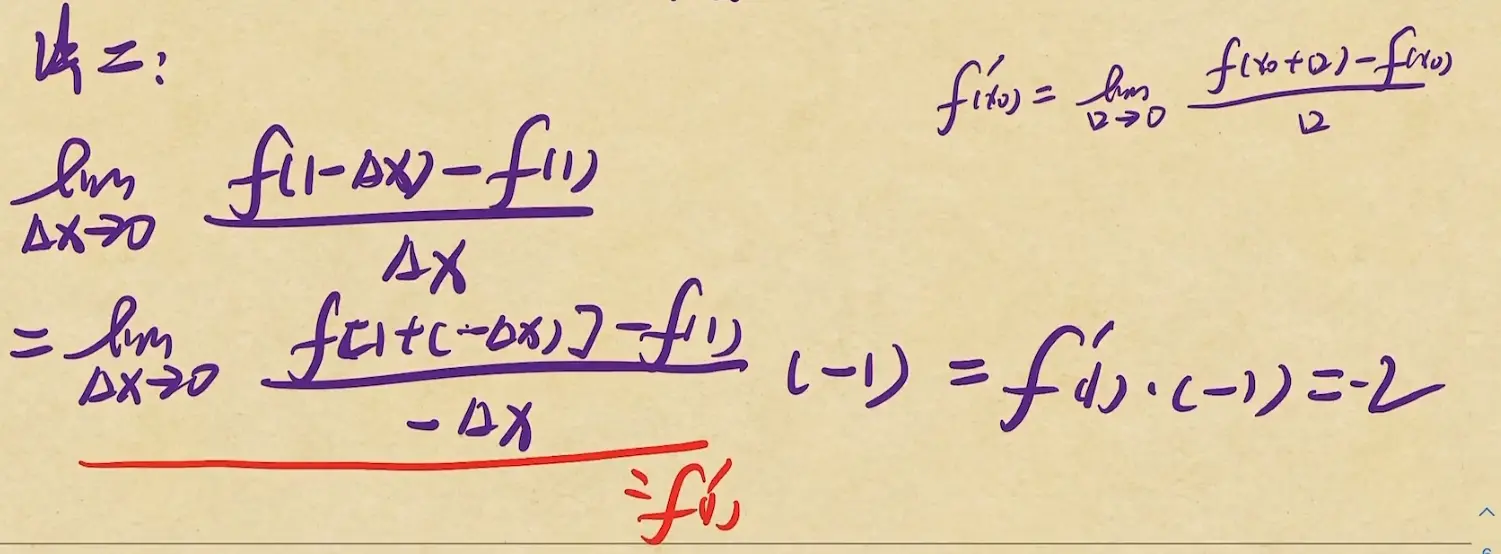 法二:
f'(x₀) = lim_{□→0} \frac{f(x₀+□)-f(x₀)}{□}
lim_{Δx→0} \frac{f(1-Δx)-f(1)}{Δx}
= lim_{Δx→0} \frac{f[1+(-Δx)]-f(1)}{-Δx} (-1) = f'(1)·(-1) = -2
= f'(1)